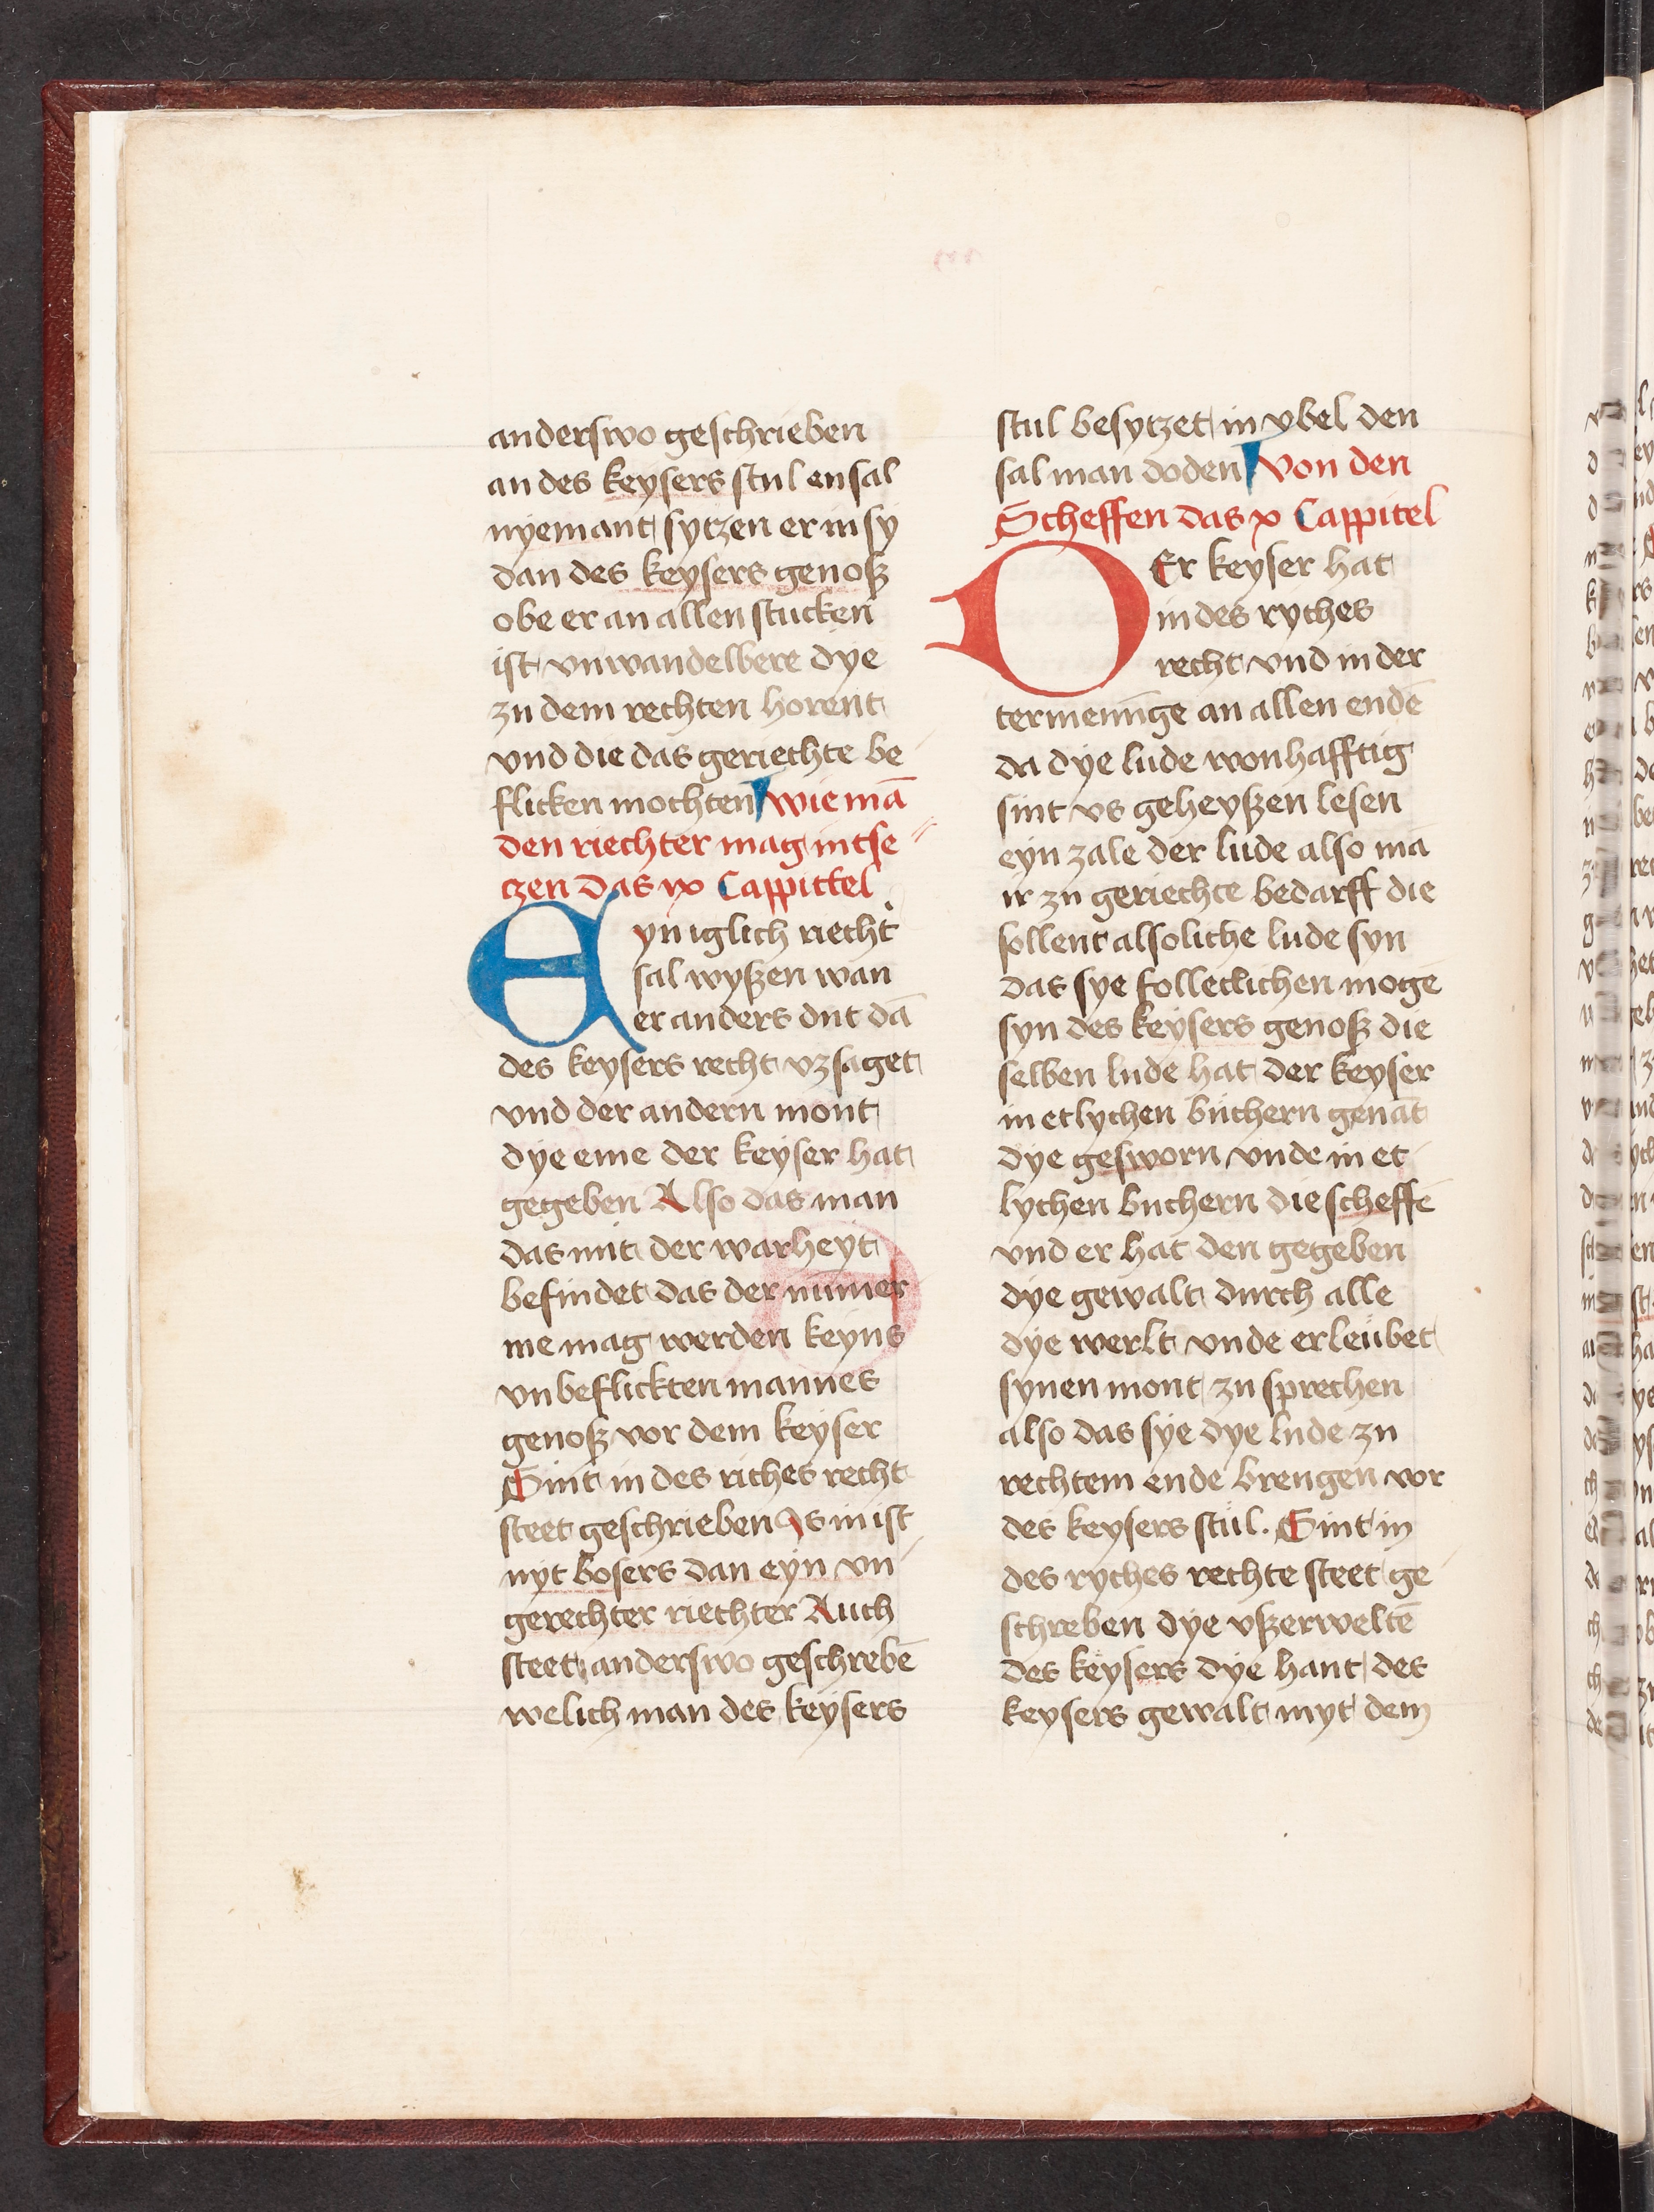 anderswo geschrieben
an des keysers stul en sal
nyemant sytzen er in sy
dan des keysers genoß
obe er an allen stucken
ist vnwandelbere dye
zu dem rechten horent
vnd die das geriechte be
flicken mochten wie mā
den riechter mag intse
czen das ix Cappittel
Eyn iglich riecht'
sal wyßen wan
er anders dut dā
des keysers recht vz saget
vnd der andern mont
dye eme der keyser hat
gegeben Also das man
das mit der warheyt
befindet das der nimer
me mag werden keyns
vnbeflickten mannes
genoß vor dem keyser
Sint in des riches recht
steet geschrieben Is in ist
nyt bosers dan eyn vn
gerechter riechter Auch
steet anderswo geschrebē
welich man des keysers
stul besytzet in vbel den
sal man doden von den
Scheffen das x Cappitel
DEr keyser hat
in des ryches
recht vnd in der
termenu̅ge an allen endē
da dye lude wonhafftig
sint vs geheyßen lesen
eyn zale der lude also ma
ir zu geriechte bedarff die
sollent alsoliche lude syn
das sye folleclichen moge
syn des keysers genoß die
selben lude hat der keyser
in etlychen buchern genāt
dye gesworn vnde in et
lychen buchern die scheffē
vnd er hat den gegeben
dye gewalt durch alle
dye werlt vnde erleubet
synen mont zu sprechen
also das sye dye lude zu
rechtem ende brengen vor
des keysers stul. Sint in
des ryches rechte steet ge
schreben dye vßerweltē
des keysers dye hant des
keysers gewalt myt dem